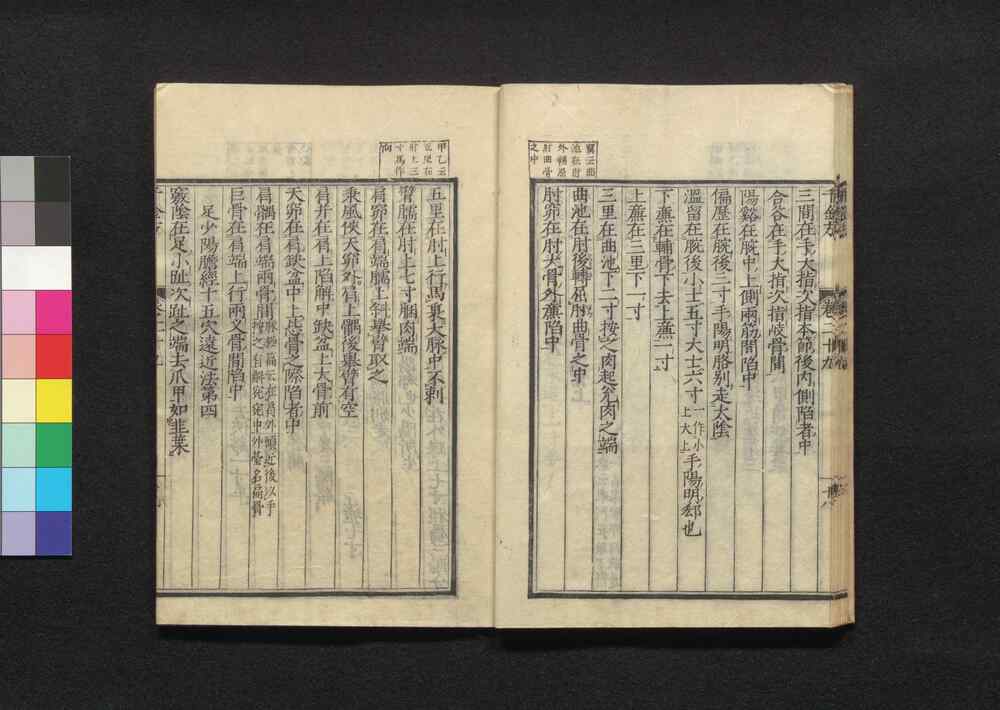 翼云曲
池在肘
外輔屈
肘曲骨
之中
三間在手大指次指本節後內側陷者中
合谷在手大指次指歧骨間
陽谿在腕中上側兩筋間陷中
偏歷在腕後三寸手陽明胳別走太陰
溫留在腕後小士五寸大士六寸一作小上大上手陽明郄也
下蕪在輔骨下去上蕪一寸
上蕪在三里下一寸
三里在曲池下二寸按之肉起兌肉之端
曲池在肘後轉屈肘曲骨之中
肘窌在肘大骨外蕪陷中
卷二十九
甲乙云
五里在
肘上三
寸馬作
向
五里在肘上行馬裏大脉中不刺
臂臑在肘上七寸膕肉端
肩窌在肩端臑上斜舉臂取之
秉風俠天窌外肩上髃後舉臂有空
肩井在肩上陷解中缺盆上大骨前
天窌在肩缺盆中上毖骨之際陷者中
肩髃在肩端兩骨間
巨骨在肩端上行兩叉骨間陷中
足少陽膽經十五穴遠近法第四
竅陰在足小趾次趾之端去爪甲如韭葉